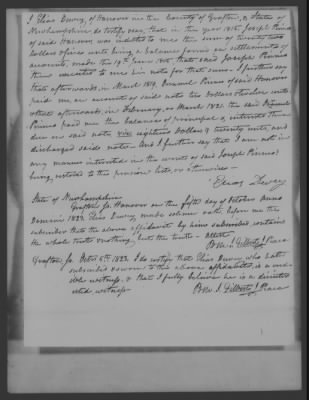 I Elias Dewey, of Hanover in the County of Grafton, & State of
Newhampshire do testify & say, that in the year 1815 Joseph Pinneo
of said Hanover was indebted to me the sum of twenty two
Dollars which being a balance found on settlement of
accounts, made the 19th June 1815 that said Joseph Pinneo
then executed to me his note for that sum. I further say
that afterwards, in March 1819, Pinneo of said Hanover
paid me on account of said note ten Dollars
that afterwards, in February, or March 1821 the said
Pinneo paid me the balance of principal & interest then
due on said note viz eighteen Dollars & twenty cents, and
discharged said note - And I further say that I am not in
any manner interested in the event of said Joseph Pinneo
being restored to the pension list, or otherwise -
Elias Dewey
State of Newhampshire
Grafton Ss. Hanover on the fifth day of October Anno
Domini 1823. Elias Dewey made solemn oath, before me the
subscriber that the above affidavit by him subscribed contains
the whole truth & nothing but the truth - Attest
Benj. J. Gilbert J. Peace
Grafton Ss. Octr 5th 1823. I do certify that Elias Dewey who hath
subscribed & sworn to the above affidavit, is a
credible witness, & that I fully believe he is a disinter-
ested witness -
Benj. J. Gilbert J. Peace